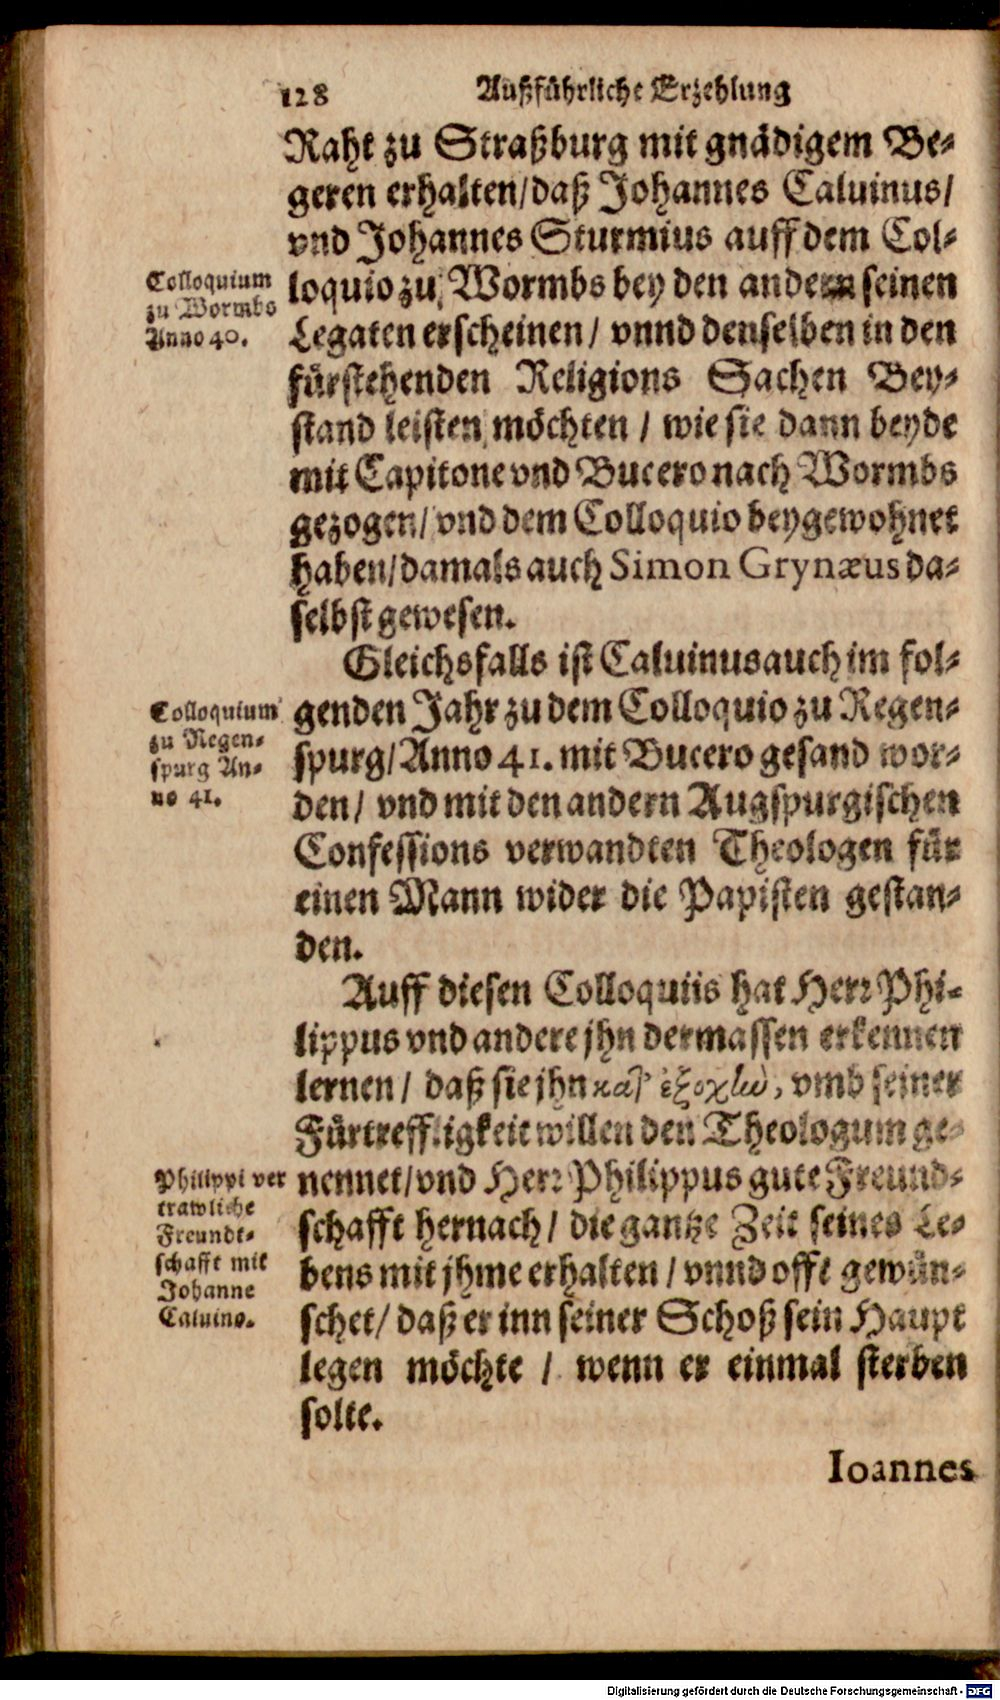 128 Außführliche Erzehlung
Raht zu Straßburg mit gnädigem Be-
geren erhalten/daß Johannes Caluinus/
vnd Johannes Sturmius auff dem Col-
loquio zu Wormbs bey den andern seinen
Legaten erscheinen/ vnnd denselben in den
fürstehenden Religions Sachen Bey-
stand leisten möchten / wie sie dann beyde
mit Capitone vnd Bucero nach Wormbs
gezogen/vnd dem Colloquio beygewohnet
haben/damals auch Simon Grynæus da-
selbst gewesen.
Colloquium
zu Wormbs
Anno 40.
Gleichsfalls ist Caluinus auch im fol-
genden Jahr zu dem Colloquio zu Regen-
spurg/Anno 41. mit Bucero gesand wor-
den/ vnd mit den andern Augspurgischen
Confessions verwandten Theologen für
einen Mann wider die Papisten gestan-
den.
Colloquium
zu Regen-
spurg An-
no 41.
Auff diesen Colloquiis hat Herr Phi-
lippus vnd andere jhn dermassen erkennen
lernen/ daß sie jhn κατ' ἐξοχὴν, vmb seiner
Fürtreffligkeit willen den Theologum ge-
nennet/vnd Herr Philippus gute Freund-
schafft hernach/ die gantze Zeit seines Le-
bens mit jhme erhalten / vnnd offt gewün-
schet/ daß er inn seiner Schoß sein Haupt
legen möchte / wenn er einmal sterben
solte.
Philippi ver
trawliche
Freundt-
schafft mit
Johanne
Caluino.
Ioannes
Digitalisierung gefördert durch die Deutsche Forschungsgemeinschaft - DFG